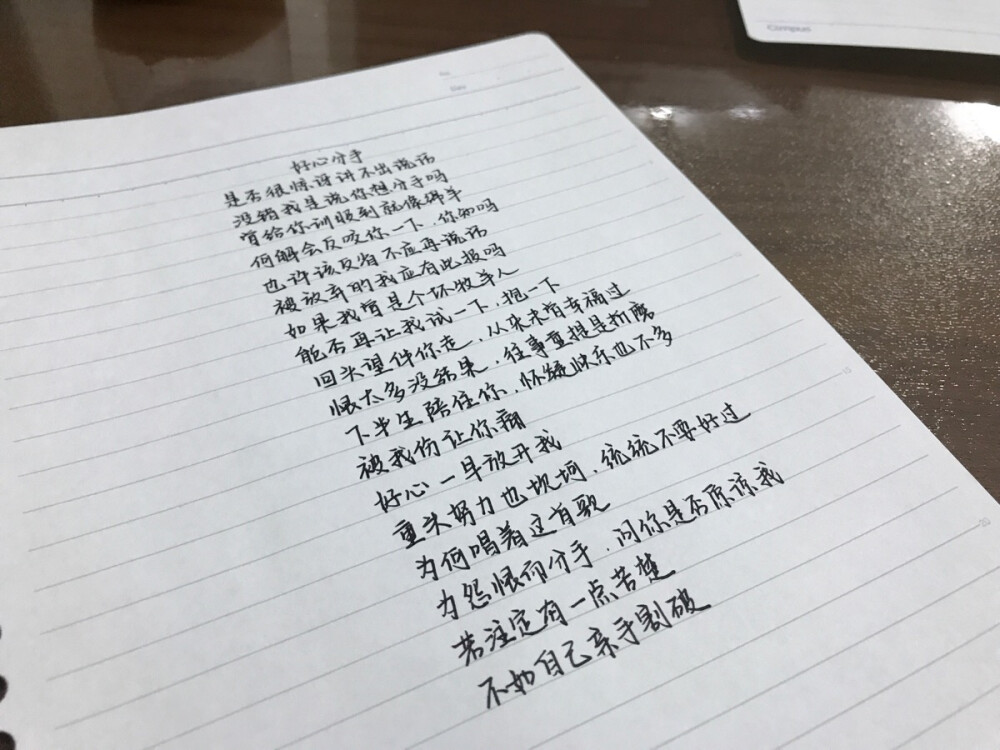 Campus
No.
好心分手
是否很惊讶讲不出说话
没错我是说你想分手吗
曾给你训服到就像绵羊
何解会反咬你一下，你知吗
也许该反省不应再说话
被放弃的我应有此报吗
如果我曾是个坏牧羊人
能否再让我试一下，抱一下
回头望伴你走，从来未曾幸福过
恨太多没结果，往事重提是折磨
下半生陪住你，怀疑快乐也不多
被我伤让你痛
好心一早放开我
重头努力也坎坷，统统不要好过
为何唱着这首歌
为怨恨而分手，问你是否原谅我
若注定有一点苦楚
不如自己亲手割破
15
20